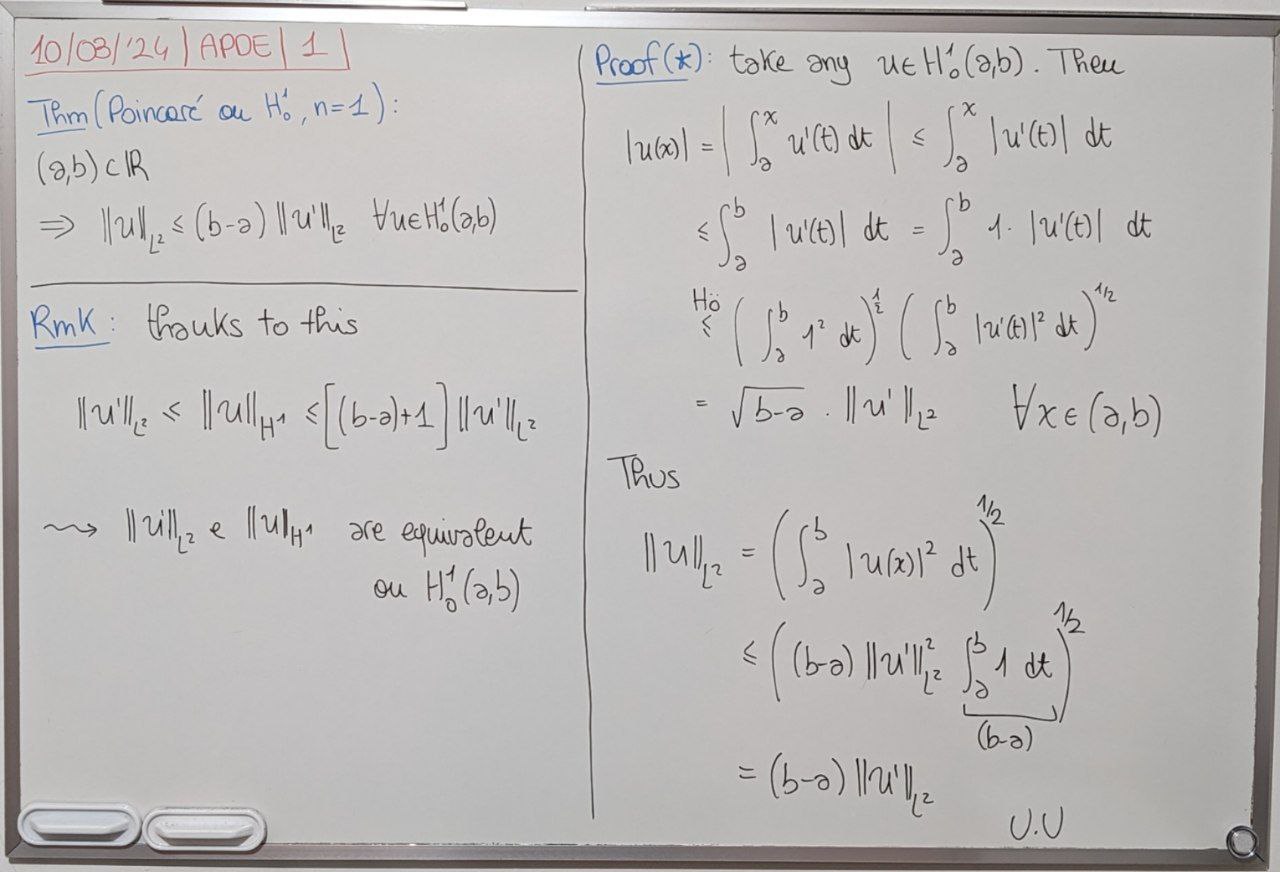 10/03/'24 | APDE | 1 |
Thm (Poincaré on H¹₀, n=1):
(a,b) ⊂ ℝ
⇒ ‖u‖_L² ≤ (b-a) ‖u'‖_L² ∀u∈H¹₀(a,b)
Rmk: thanks to this
‖u'‖_L² ≤ ‖u‖_H¹ ≤ [(b-a)+1] ‖u'‖_L²
⇝ ‖u'‖_L² e ‖u‖_H¹ are equivalent
on H¹₀(a,b)
Proof(*): take any u∈H¹₀(a,b). Then
|u(x)| = | ∫_a^x u'(t) dt | ≤ ∫_a^x |u'(t)| dt
≤ ∫_a^b |u'(t)| dt = ∫_a^b 1· |u'(t)| dt
Hö
≤ ( ∫_a^b 1² dt )^{1/2} ( ∫_a^b |u'(t)|² dt )^{1/2}
= √(b-a) · ‖u'‖_L² ∀x∈(a,b)
Thus
‖u‖_L² = ( ∫_a^b |u(x)|² dt )^{1/2}
≤ ( (b-a) ‖u'‖²_L² ∫_a^b 1 dt )^{1/2}
(b-a)
= (b-a) ‖u'‖_L²
U.U